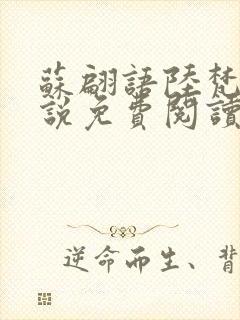 蘇翩語陸梵
說免費閱讀
逆命而生、背